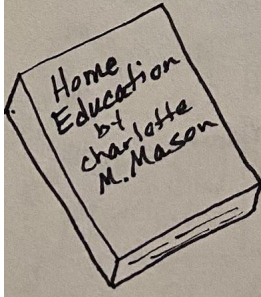 Home
Education
by
charlotte
M. Mason